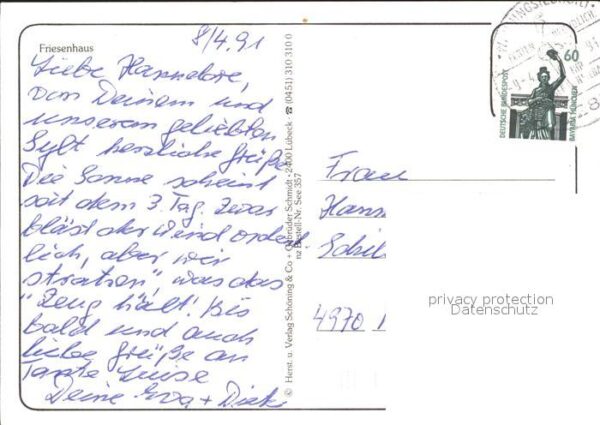 8/4.91
Friesenhaus
Liebe Hannelore,
von Deinem und
unserem geliebten
Sylt herzliche Grüße
Die Sonne scheint
seit dem 3. Tag. Zwar
bläst der Wind ordent-
lich, aber wir
"straton", was das
"Zeug hält! Bis
bald und auch
liebe Grüße an
Tante Luise
Deine Eva + Dieter
© Herst. u. Verlag Schöning & Co + Gebrüder Schmidt · 2400 Lübeck · ☎ (0451) 310 310 0
nz Bestell-Nr. See 357
60
DEUTSCHE BUNDESPOST
BAVARIA MÜNCHEN
Frau
Hann
Schi
4970
privacy protection
Datenschutz